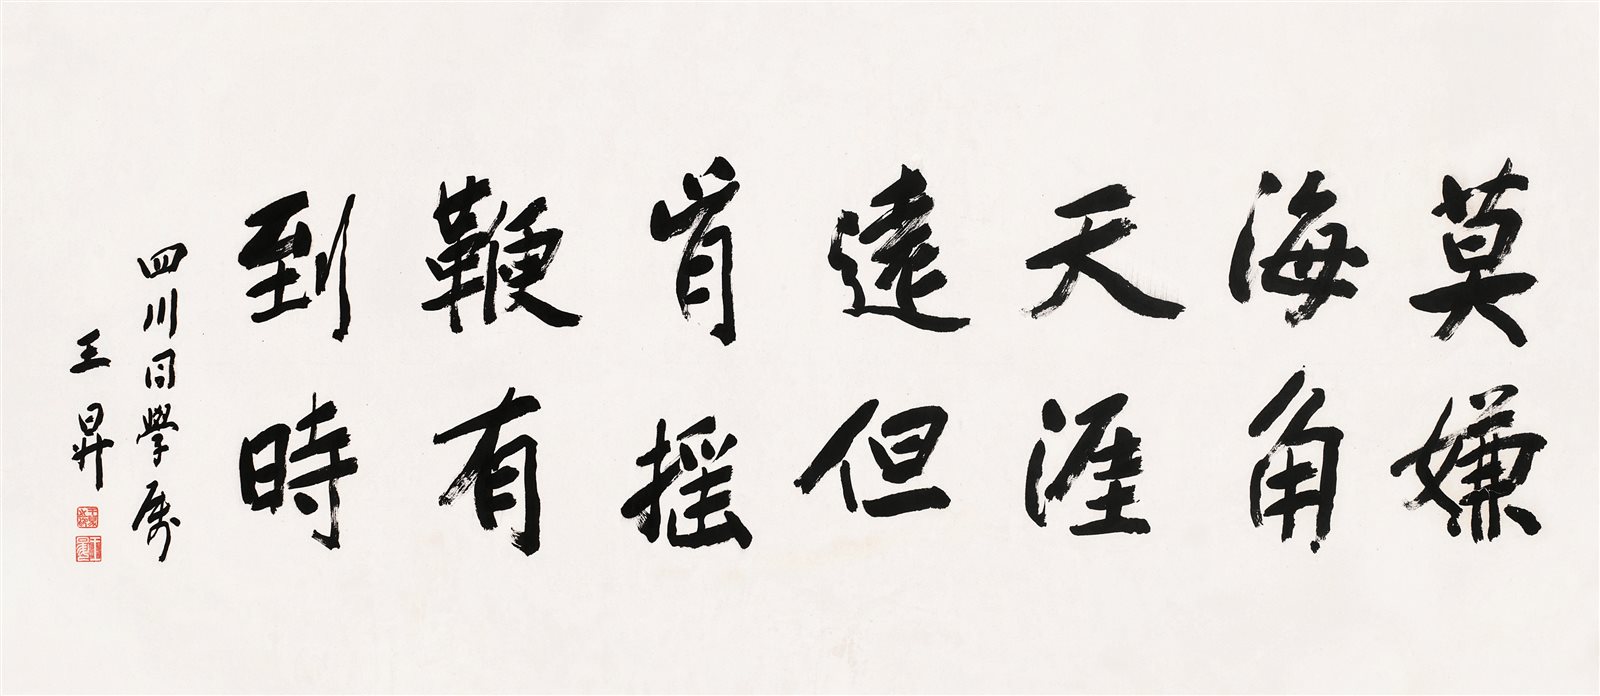 莫嫌
海角
天涯
遠但
肯摇
鞭有
到時
四川同學属
王昇